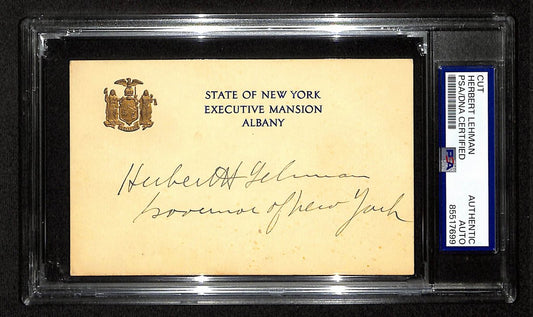 STATE OF NEW YORK
EXECUTIVE MANSION
ALBANY
Herbert H Lehman
Governor of New York
CUT
HERBERT LEHMAN
PSA/DNA CERTIFIED
PSA
AUTHENTIC
AUTO
85517699